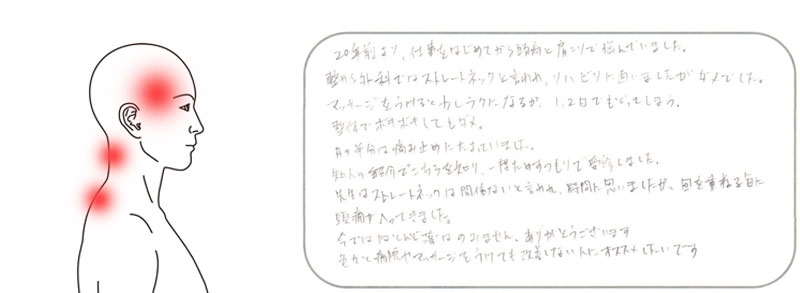 20年前より、仕事をはじめてから頭痛と肩こりで悩んでいました。
整形外科ではストレートネックと言われ、リハビリに通いましたがダメでした。
マッサージをうけると少しラクになるが、1.2日でもどってしまう。
整体でボキボキしてもダメ。
月の半分は痛み止めにたよっていました。
知人の紹介でこちらを知り、一度ためすつもりで受診しました。
先生はストレートネックは関係ないと言われ、疑問に思いましたが、回を重ねる毎に
頭痛がへってきました。
今ではほとんど薬はのみません。ありがとうございます
色々と病院やマッサージをうけても改善しない人にオススメしたいです